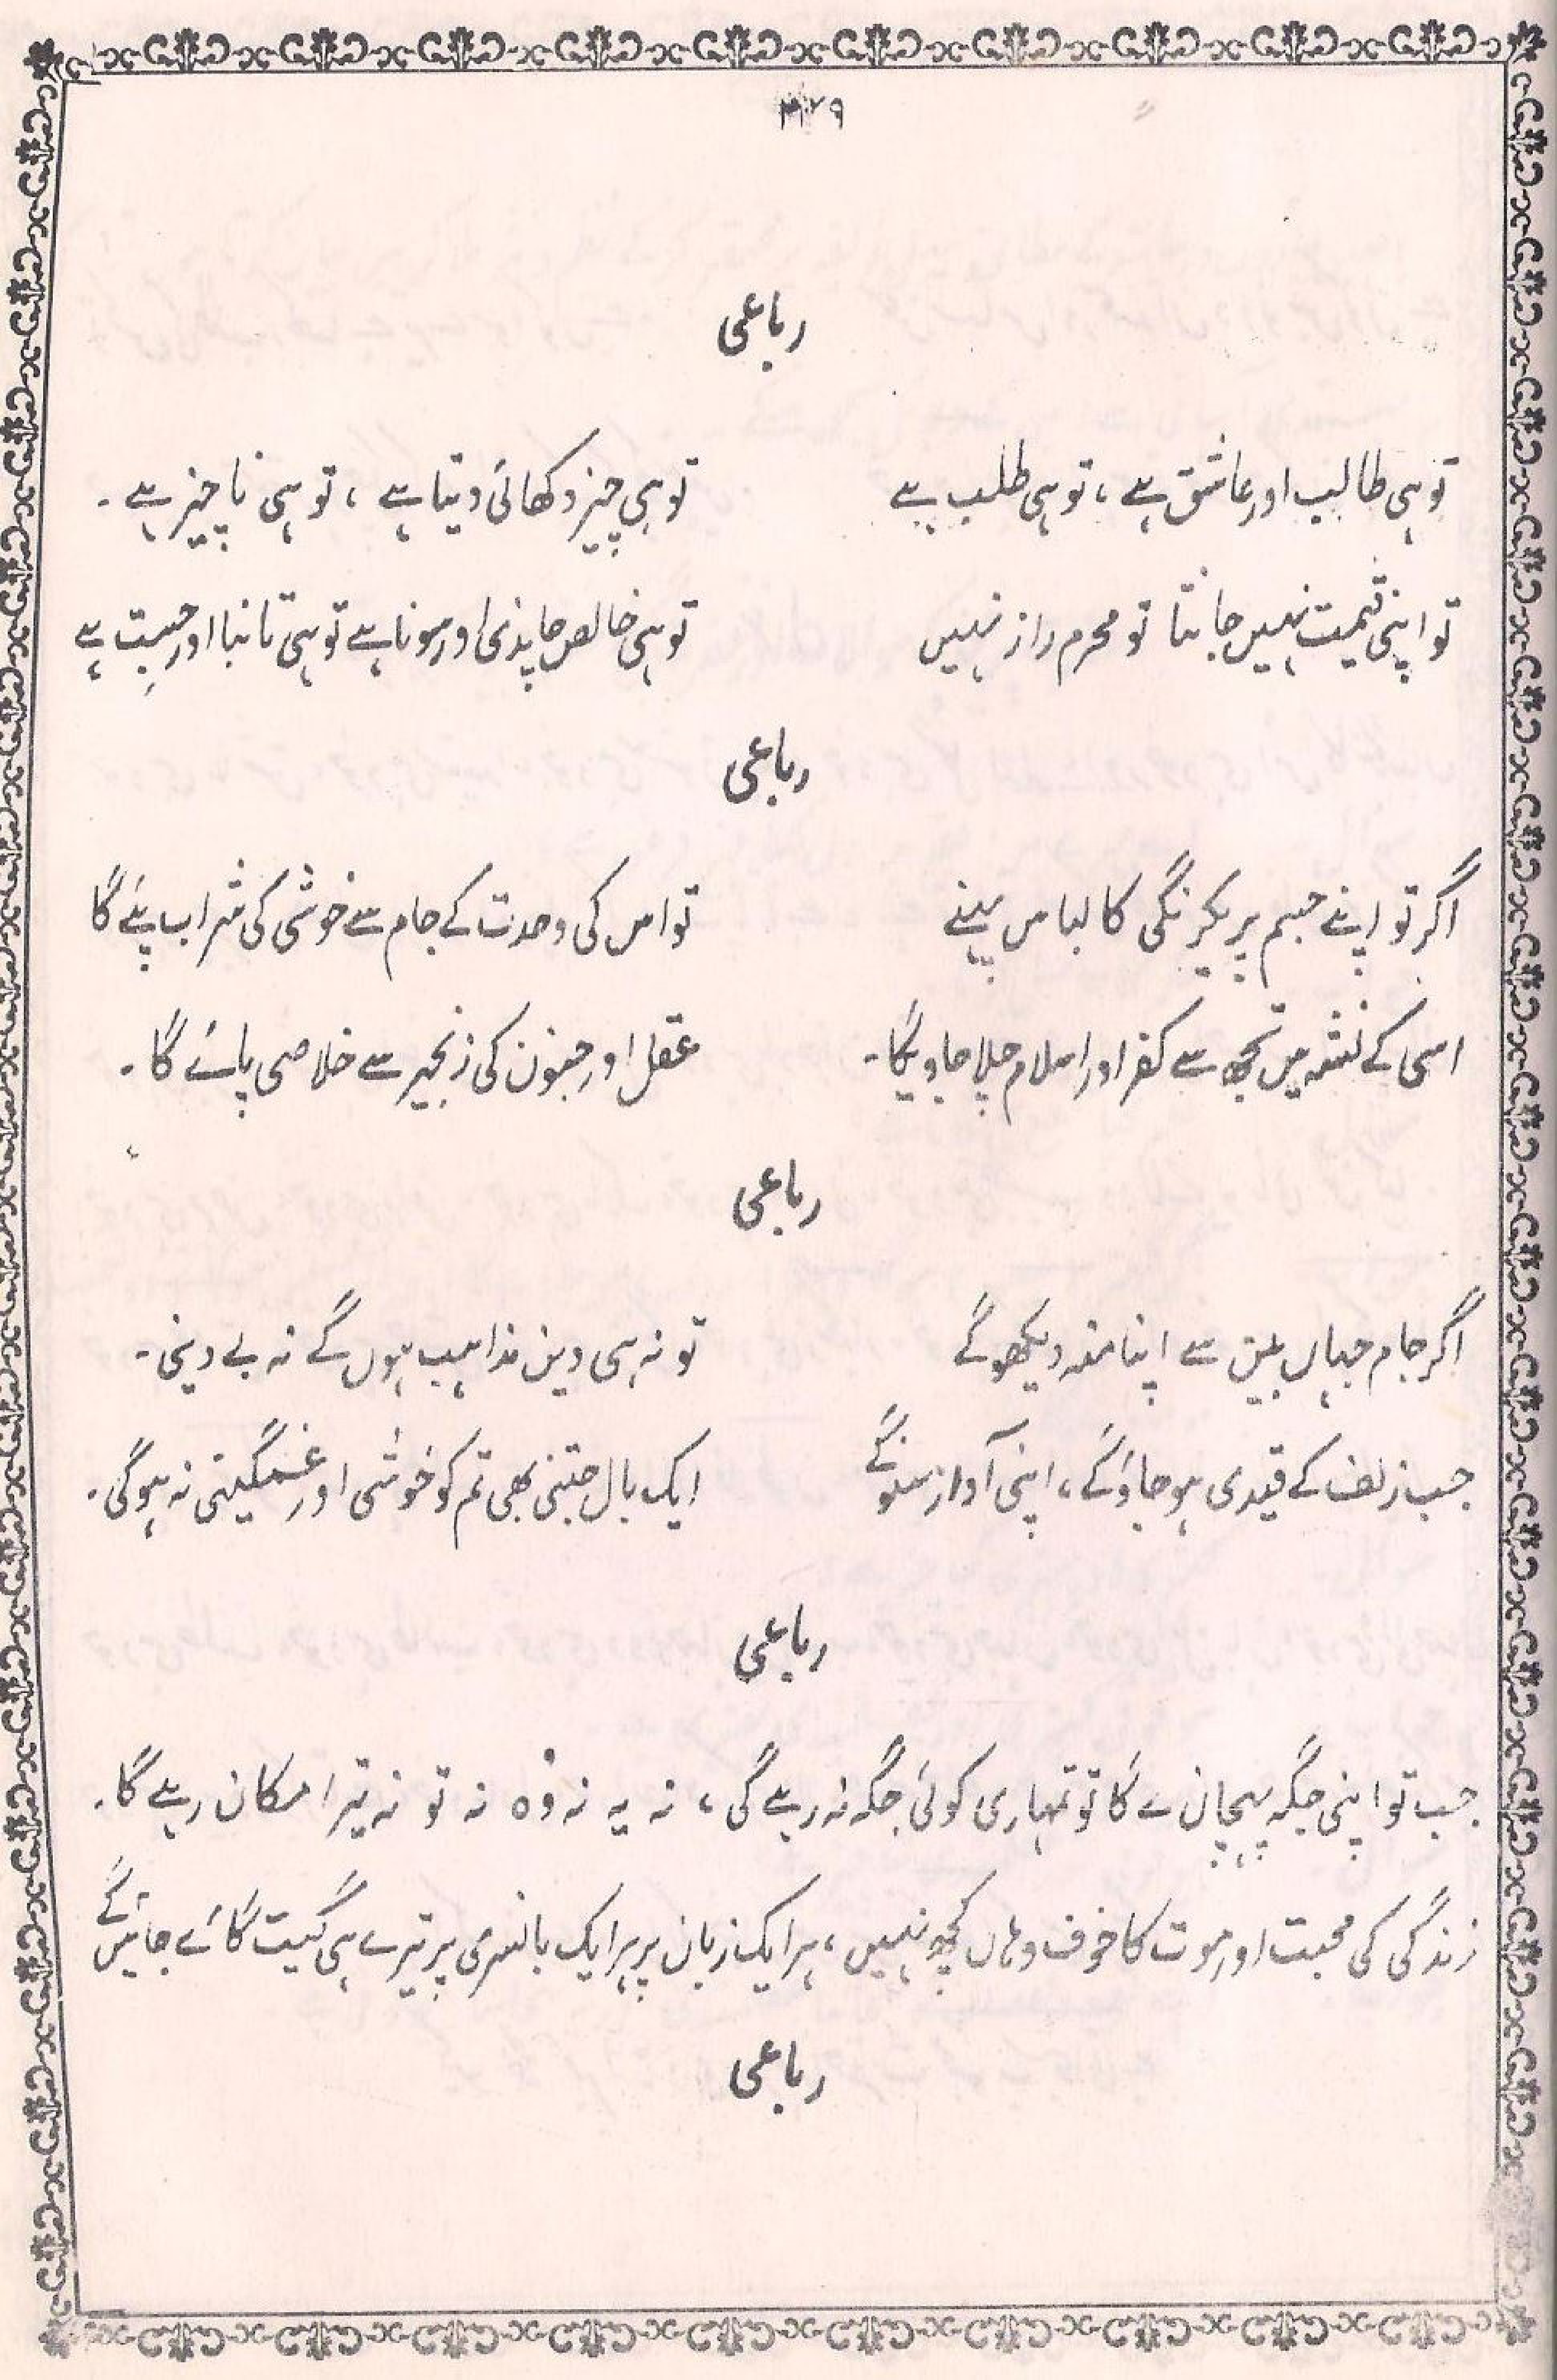 ۳۲۹
رباعی
تو ہی طالب اور عاشق ہے ، تو ہی طلب ہے تو ہی چیز دکھائی دیتا ہے ، تو ہی ناچیز ہے ۔
تو اپنی قیمت نہیں جانتا تو محرم راز نہیں تو ہی خالص چاندی اور سونا ہے تو ہی تانبا اور جست ہے
رباعی
اگر تو اپنے جسم پر یکرنگی کا لباس پہنے تو اس کی وحدت کے جام سے خوشی کی شراب پئے گا
اسی کے نشہ میں تجھ سے کفر اور اسلام چلا جاویگا ۔ عقل اور جنون کی زنجیر سے خلاصی پائے گا ۔
رباعی
اگر جام جہاں بین سے اپنا منہ دیکھو گے تو نہ ہی دین مذاہب ہوں گے نہ بے دینی ۔
جب زلف کے قیدی ہو جاؤ گے ، اپنی آواز سنو گے ایک بال جتنی بھی تم کو خوشی اور غمگینی نہ ہوگی ۔
رباعی
جب تو اپنی جگہ پہچان لے گا تو تمہاری کوئی جگہ نہ رہے گی ، نہ یہ نہ وہ نہ تو نہ تیرا مکان رہے گا ۔
زندگی کی محبت اور موت کا خوف وہاں کچھ نہیں ، ہر ایک زبان پر ہر ایک بانسری پر تیرے ہی گیت گائے جائیں گے
رباعی